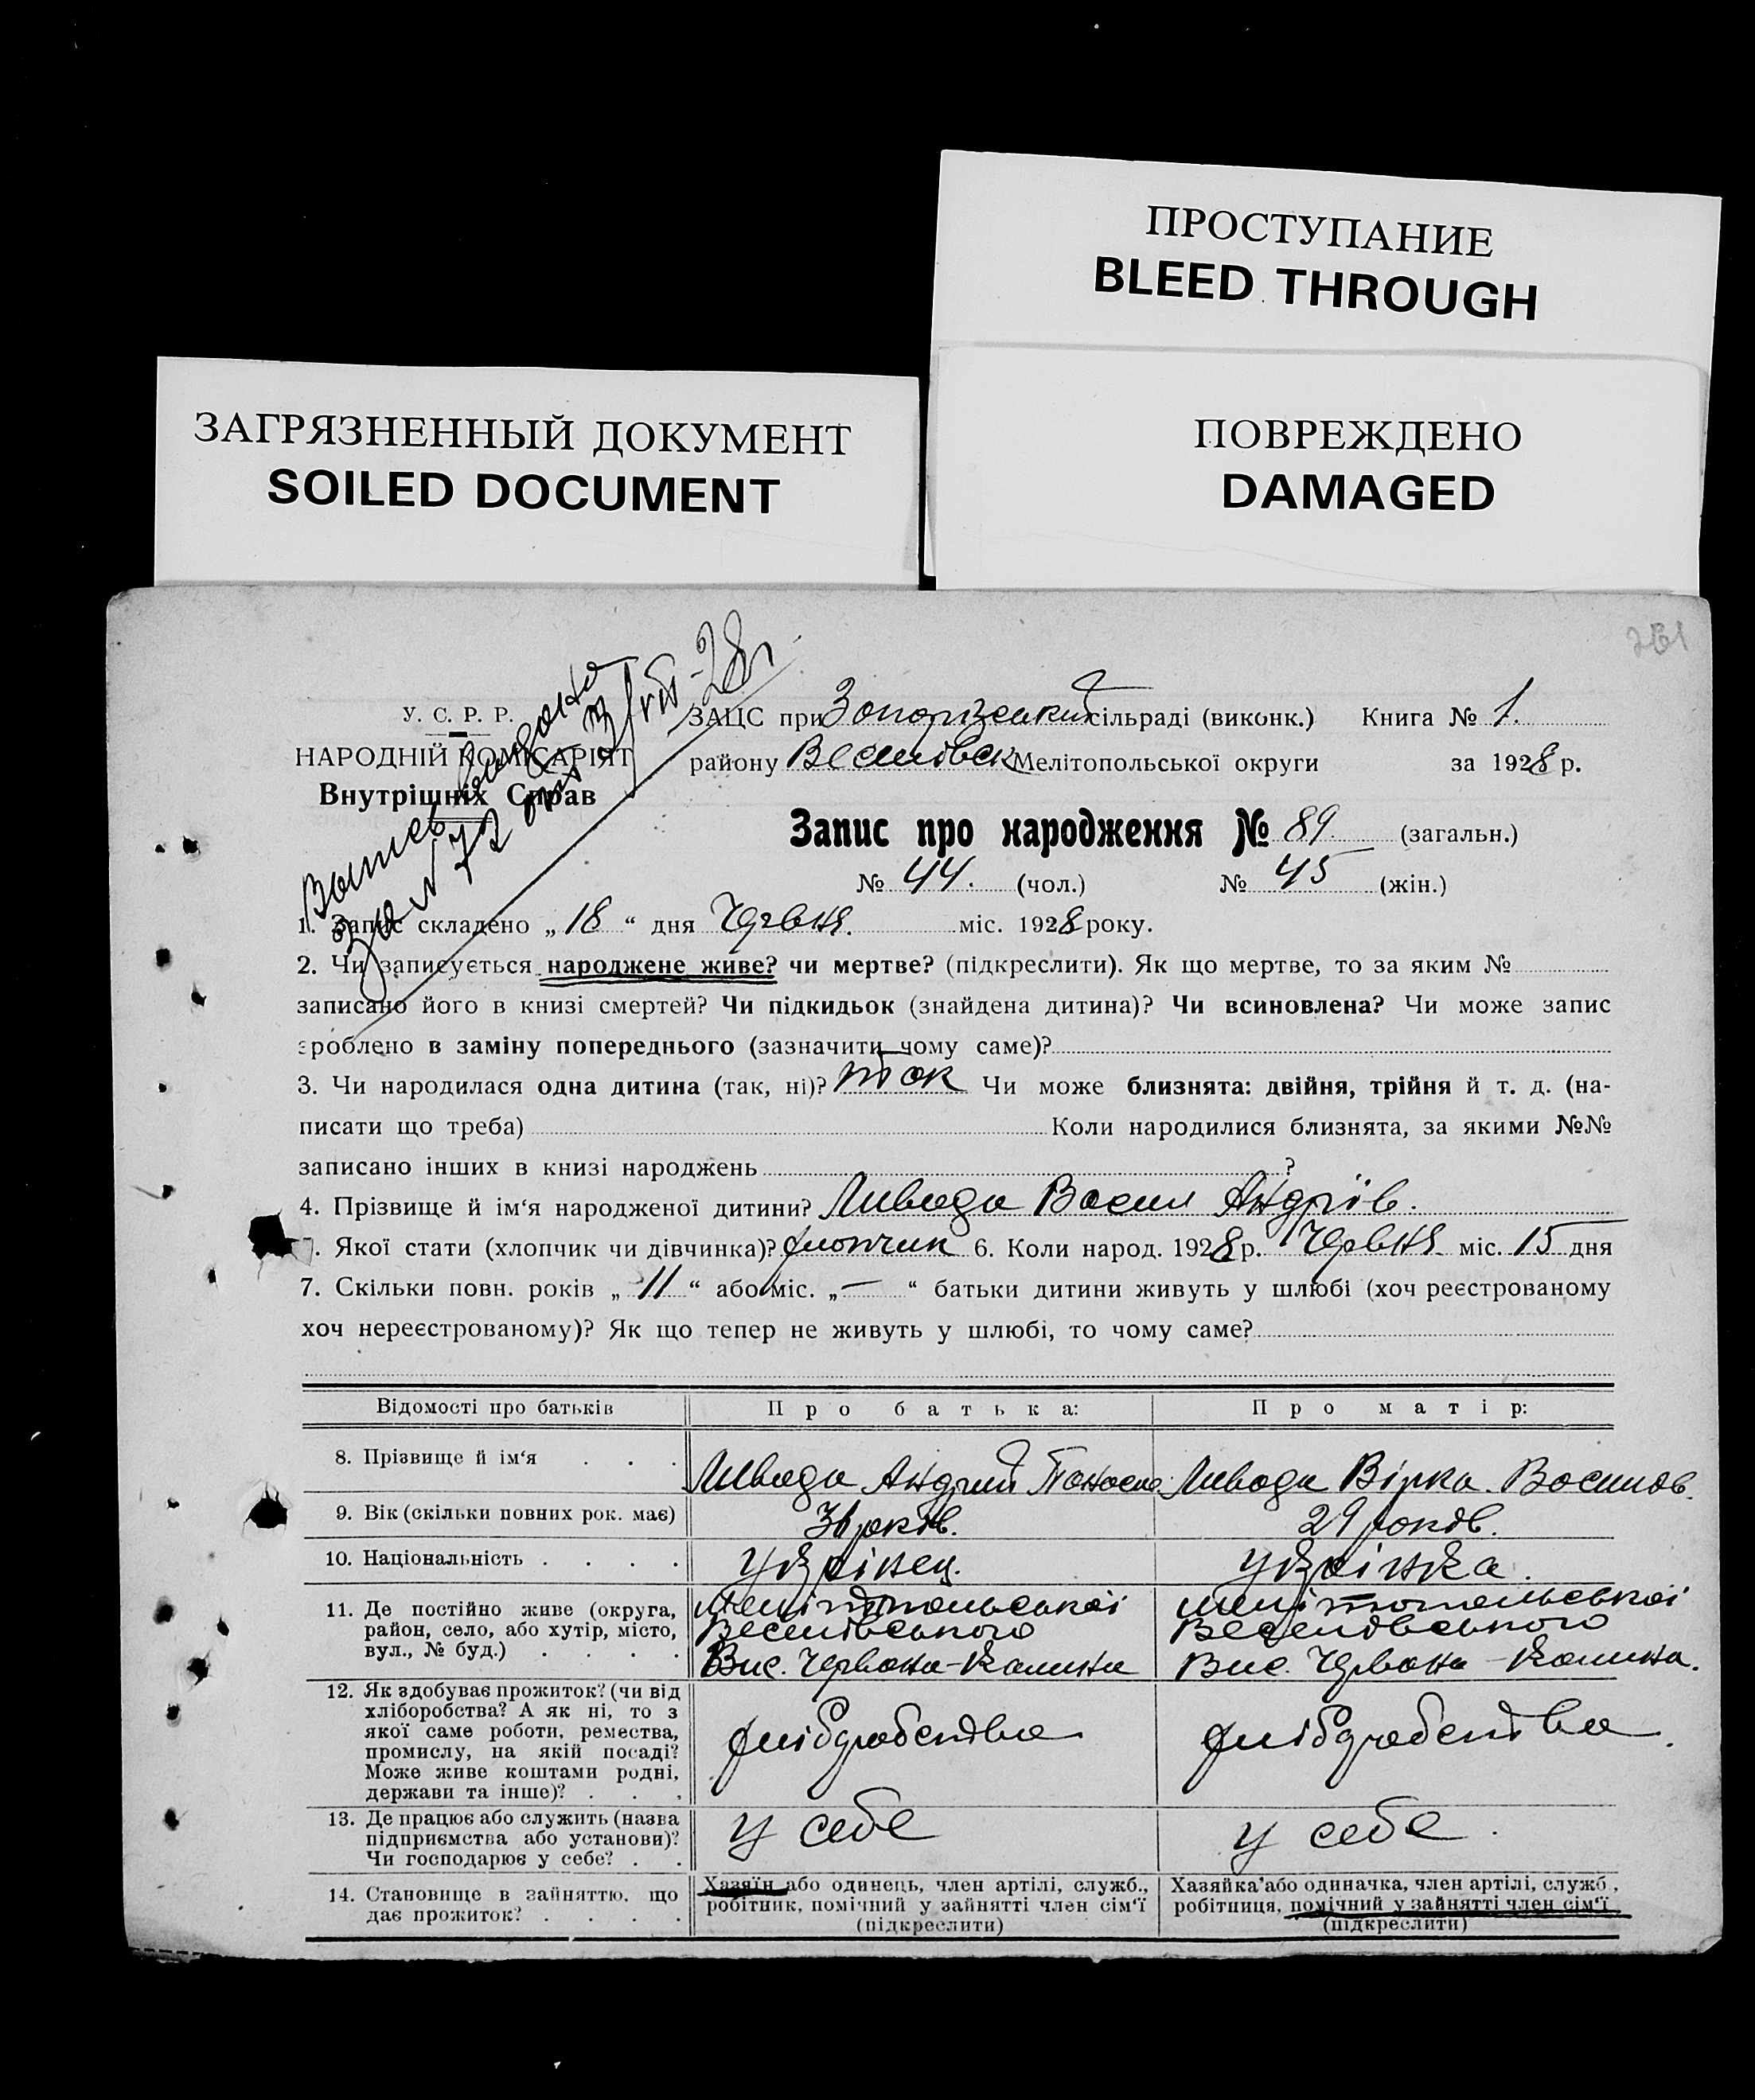 ПРОСТУПАНИЕ
BLEED THROUGH
ЗАГРЯЗНЕННЫЙ ДОКУМЕНТ
SOILED DOCUMENT
ПОВРЕЖДЕНО
DAMAGED
261
за № 72 от 3/VII-28 г
У. С. Р. Р.
НАРОДНІЙ КОМІСАРІЯТ
Внутрішніх Справ
ЗАЦС при Запорізський сільраді (виконк.) Книга № 1.
району Веселівськ Мелітопольської округи за 1928 р.
Запис про народження № 89. (загальн.)
№ 44. (чол.) № 45 (жін.)
1. Запис складено „ 18 “ дня Червня. міс. 1928 року.
2. Чи записується народжене живе? чи мертве? (підкреслити). Як що мертве, то за яким №
записано його в книзі смертей? Чи підкидьок (знайдена дитина)? Чи всиновлена? Чи може запис
зроблено в заміну попереднього (зазначити чому саме)?
3. Чи народилася одна дитина (так, ні)? так Чи може близнята: двійня, трійня й т. д. (на-
писати що треба) Коли народилися близнята, за якими №№
записано інших в книзі народжень ?
4. Прізвище й ім‘я народженої дитини? Ливада Васил Андріїв.
5. Якої стати (хлопчик чи дівчинка)? хлопчик 6. Коли народ. 1928 р. Червня міс. 15 дня
7. Скільки повн. років „ 11 “ або міс. „ — “ батьки дитини живуть у шлюбі (хоч реєстрованому
хоч нереєстрованому)? Як що тепер не живуть у шлюбі, то чому саме?
Відомості про батьків Про батька: Про матір:
8. Прізвище й ім‘я . . . Ливада Андрий Панасов. Ливада Вірка Васильов.
9. Вік (скільки повних рок. має) 31 років. 29 років.
10. Національність . . . . Українец. Українка.
11. Де постійно живе (округа, район, село, або хутір, місто, вул., № буд.) . . . .
Мелітопольськаі
Веселівського
Вис. Червона-Калина
Мелітопольськаі
Веселівського
Вис. Червона-Калина.
12. Як здобуває прожиток? (чи від хліборобства? А як ні, то з якої саме роботи, ремества, промислу, на якій посаді? Може живе коштами родні, держави та інше)? . . .
хлібдробства
хлібдробства.
13. Де працює або служить (назва підприємства або установи)? Чи господарює у себе? . .
у себе
у себе.
14. Становище в зайняттю, що дає прожиток? . . . .
Хазяїн або одинець, член артілі, служб.,
робітник, помічний у зайнятті член сім‘ї
(підкреслити)
Хазяйка або одиначка, член артілі, служб.,
робітниця, помічний у зайнятті член сім‘ї
(підкреслити)